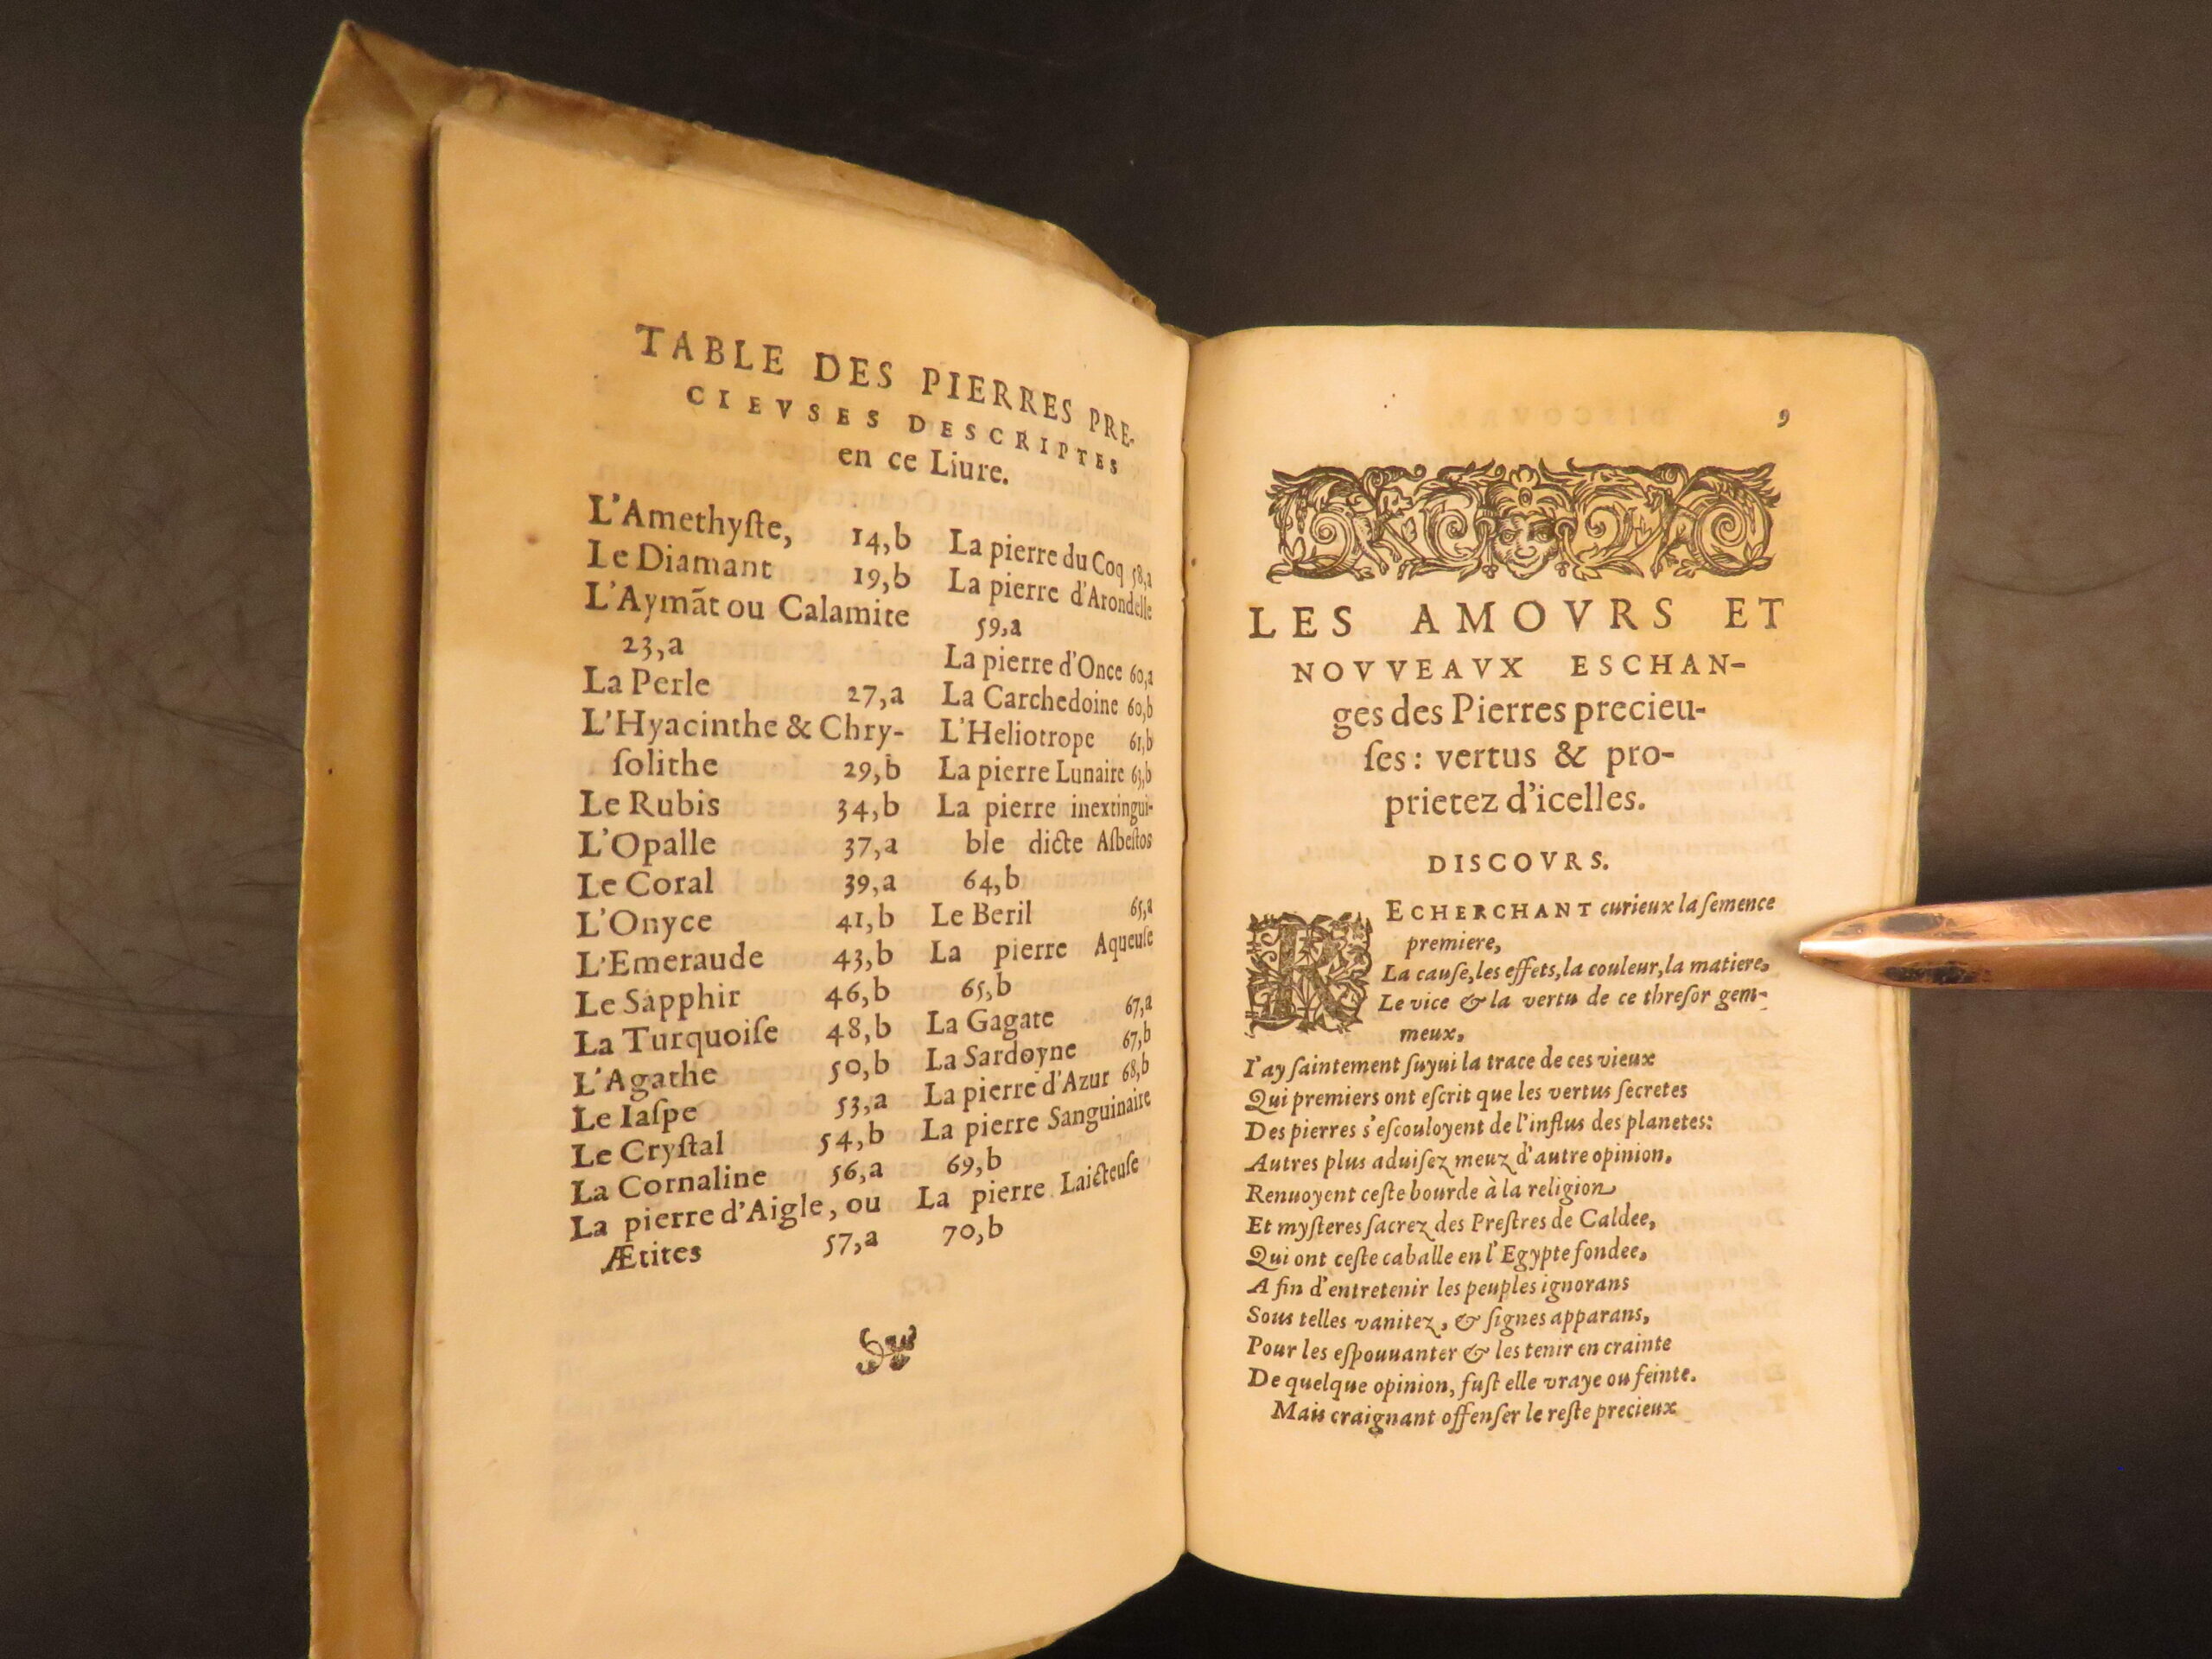 TABLE DES PIERRES PRE-
CIEVSES DESCRIPTES
en ce Liure.
L'Amethyſte, 14,b
Le Diamant 19,b
L'Aymāt ou Calamite
23,a
La Perle 27,a
L'Hyacinthe & Chry-
ſolithe 29,b
Le Rubis 34,b
L'Opalle 37,a
Le Coral 39,a
L'Onyce 41,b
L'Emeraude 43,b
Le Sapphir 46,b
La Turquoiſe 48,b
L'Agathe 50,b
Le Iaſpe 53,a
Le Cryſtal 54,b
La Cornaline 56,a
La pierre d'Aigle, ou
Ætites 57,a
La pierre du Coq 58,a
La pierre d'Arondelle
59,a
La pierre d'Once 60,a
La Carchedoine 60,b
L'Heliotrope 61,b
La pierre Lunaire 63,b
La pierre inextingui-
ble dicte Aſbeſtos
64,b
Le Beril 65,a
La pierre Aqueuſe
65,b
La Gagate 67,a
La Sardoyne 67,b
La pierre d'Azur 68,b
La pierre Sanguinaire
69,b
La pierre Laicteuſe
70,b
9
LES AMOVRS ET
NOVVEAVX ESCHAN-
ges des Pierres precieu-
ſes: vertus & pro-
prietez d'icelles.
DISCOVRS.
RECHERCHANT curieux la ſemence
premiere,
La cauſe, les effets, la couleur, la matiere,
Le vice & la vertu de ce threſor gem-
meux,
I'ay ſaintement ſuyui la trace de ces vieux
Qui premiers ont eſcrit que les vertus ſecretes
Des pierres s'eſcouloyent de l'influs des planetes:
Autres plus aduiſez meuz d'autre opinion,
Renuoyent ceſte bourde à la religion
Et myſteres ſacrez des Preſtres de Caldee,
Qui ont ceſte caballe en l'Egypte fondee,
A fin d'entretenir les peuples ignorans
Sous telles vanitez, & ſignes apparans,
Pour les eſpouuanter & les tenir en crainte
De quelque opinion, fuſt elle vraye ou feinte.
Mais craignant offenſer le reſte precieux